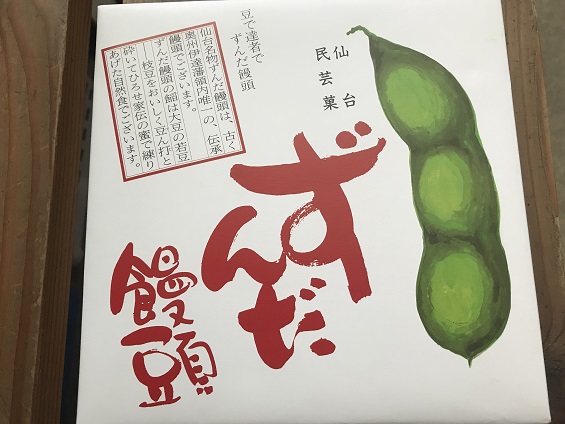 仙台
民芸菓
ずんだ
饅頭
豆で達者で
ずんだ饅頭
仙台名物ずんだ饅頭は、古く
奥州伊達藩領内唯一の、伝承
饅頭でございます。
ずんだ饅頭の餡は大豆の若豆
―枝豆をおいしく豆ん打と
砕いてひろせ家伝の蜜で練り
あげた自然食でございます。